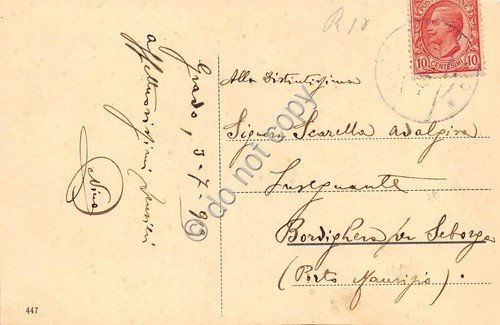 Grado, 3-7-
affettuosissimi pensieri
Nino
R 10
10 CENTESIMI 10
Alla Distintissima
Signora Scarella Adalgisa
Insegnante
Bordighera per Seborga
(Porto Maurizio)
447
do not copy